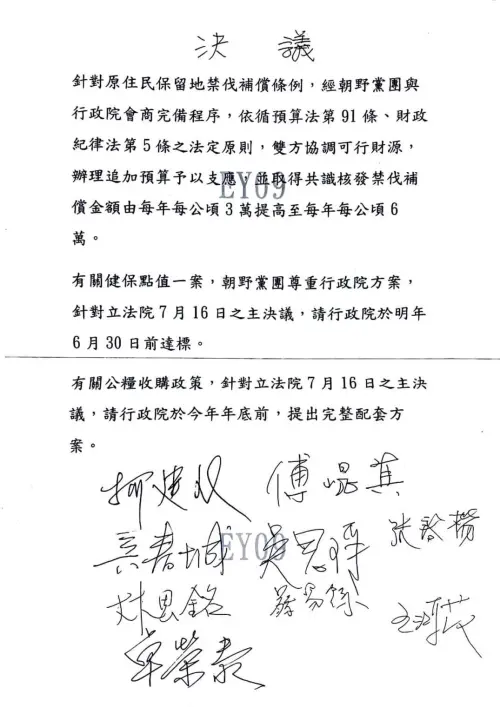 決議
針對原住民保留地禁伐補償條例，經朝野黨團與
行政院會商完備程序，依循預算法第 91 條、財政
紀律法第 5 條之法定原則，雙方協調可行財源，
辦理追加預算予以支應，並取得共識核發禁伐補
償金額由每年每公頃 3 萬提高至每年每公頃 6
萬。
EY09
有關健保點值一案，朝野黨團尊重行政院方案，
針對立法院 7 月 16 日之主決議，請行政院於明年
6 月 30 日前達標。
有關公糧收購政策，針對立法院 7 月 16 日之主決
議，請行政院於今年年底前，提出完整配套方
案。
柯建 傅崐萁
吳思 張啓楷
EY09
林思銘
卓榮泰